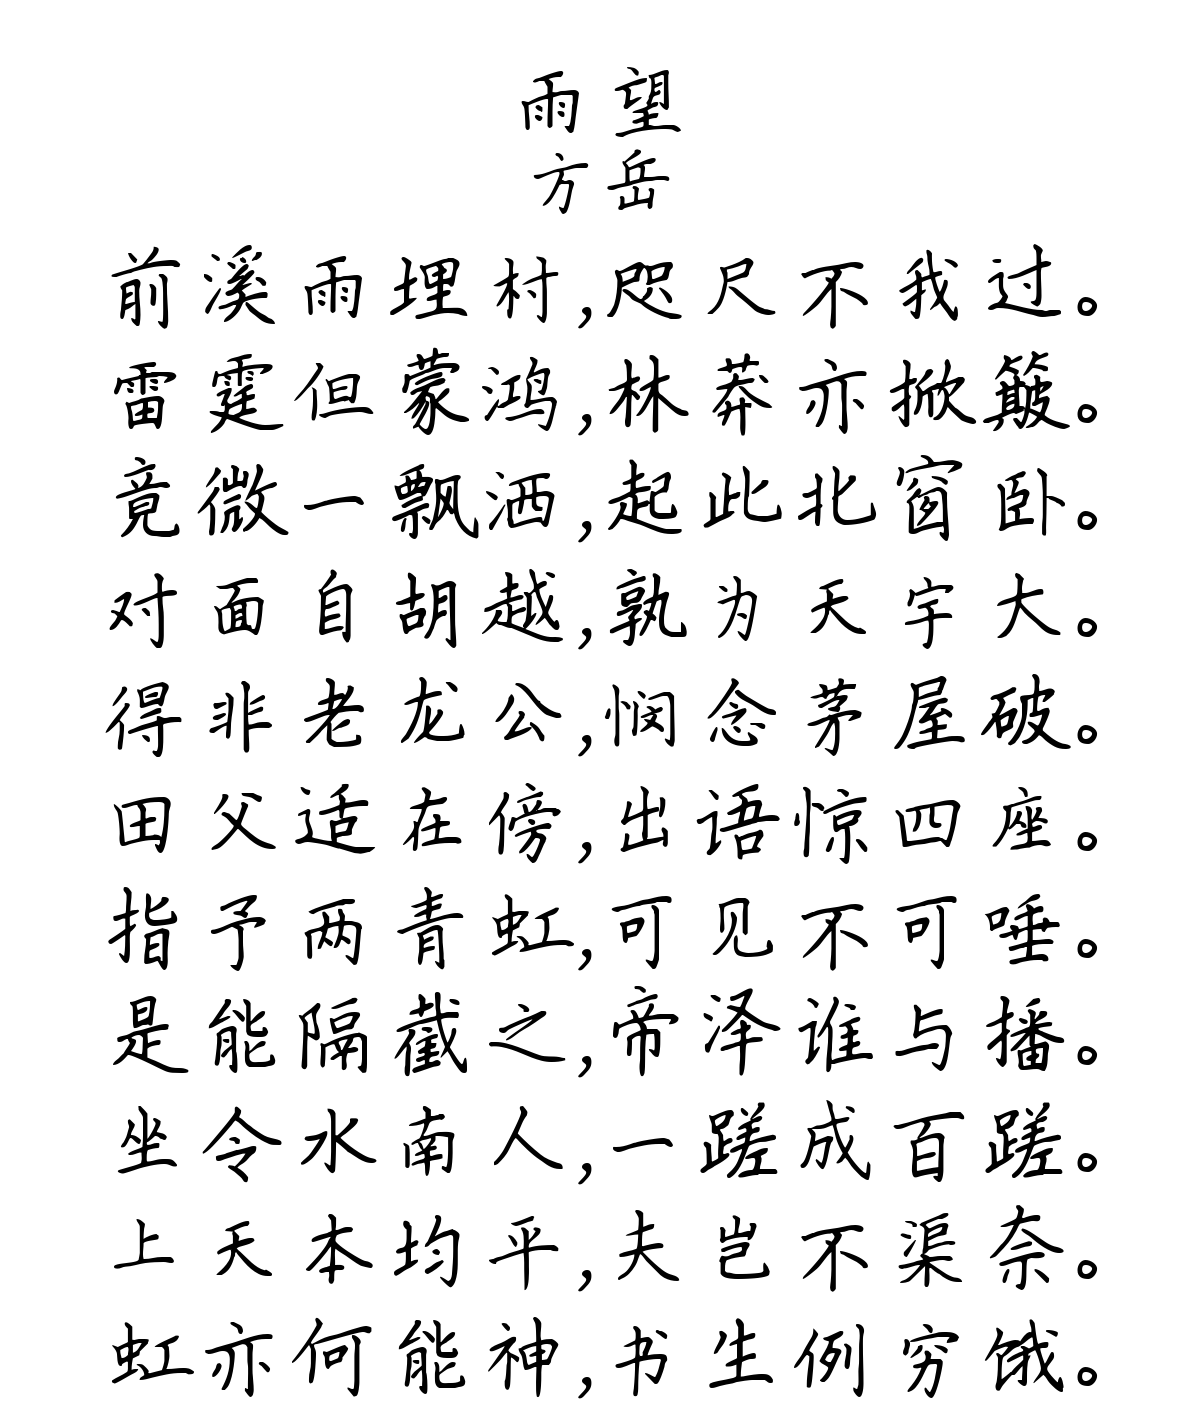 雨望
方岳
前溪雨埋村,咫尺不我过。
雷霆但蒙鸿,林莽亦掀簸。
竟微一飘洒,起此北窗卧。
对面自胡越,孰为天宇大。
得非老龙公,悯念茅屋破。
田父适在傍,出语惊四座。
指予两青虹,可见不可唾。
是能隔截之,帝泽谁与播。
坐令水南人,一蹉成百蹉。
上天本均平,夫岂不渠奈。
虹亦何能神,书生例穷饿。